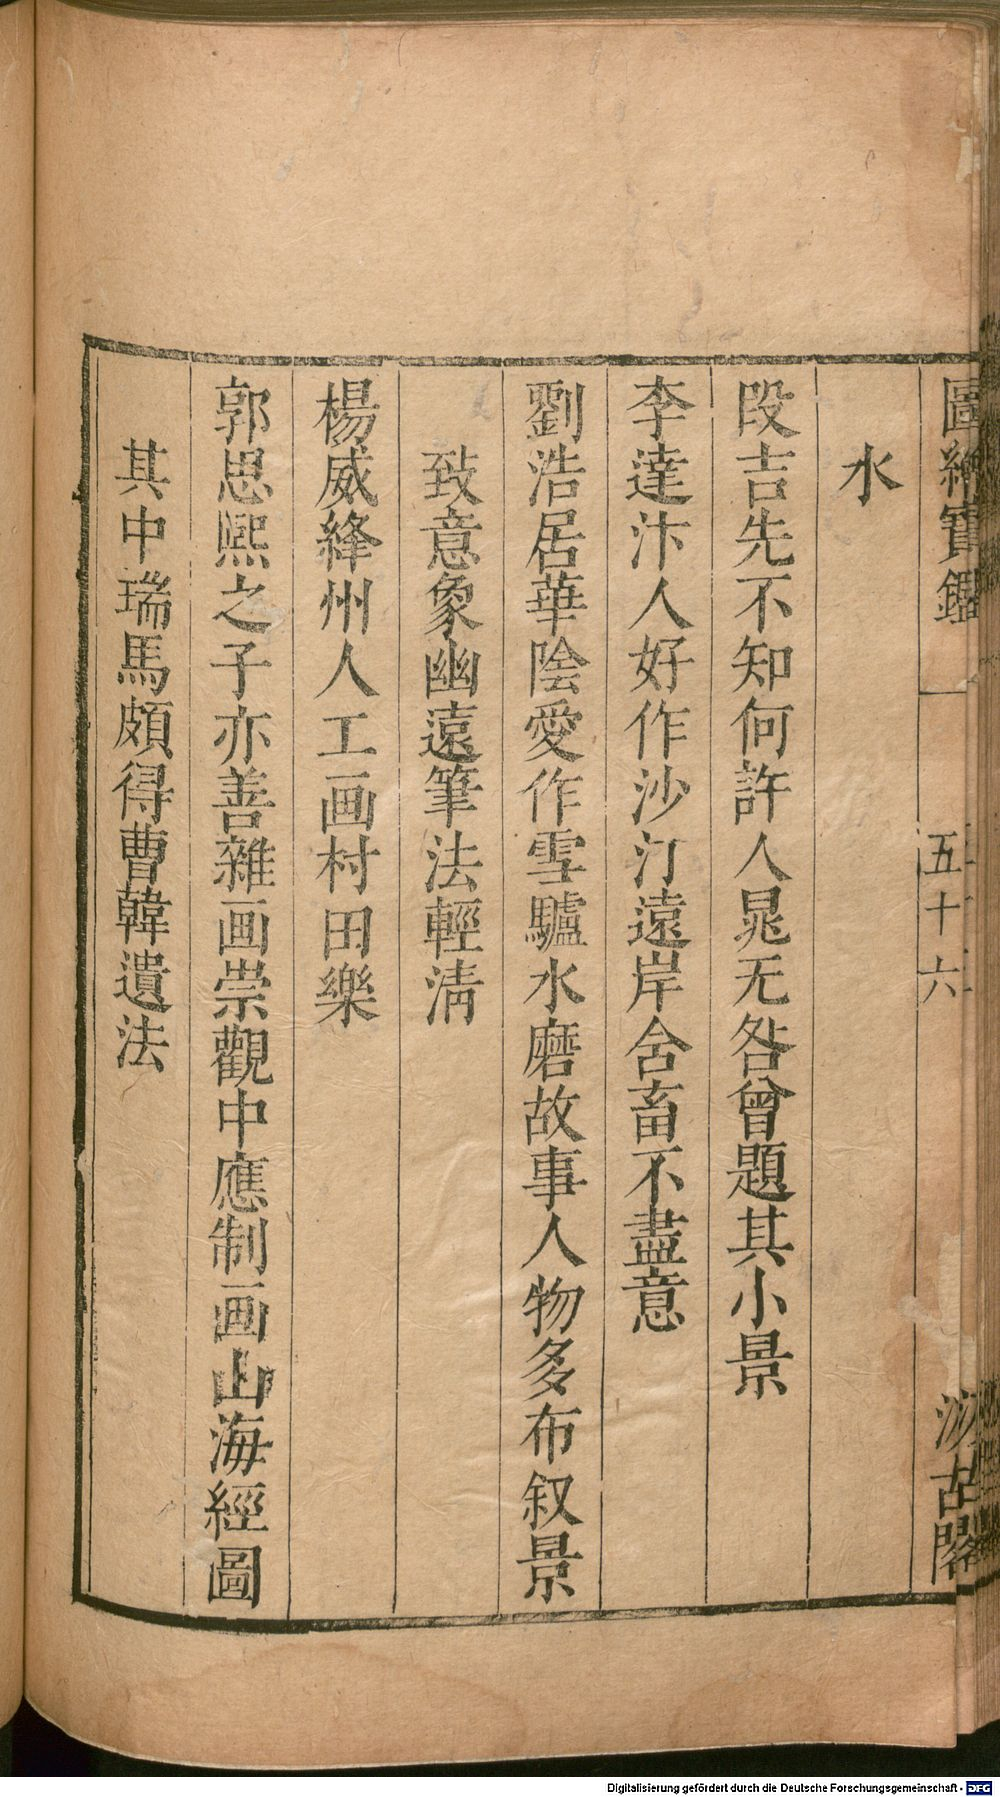 圖繪寶鑑 五十六 汲古閣
水
段吉先不知何許人晁无咎曾題其小景
李達汴人好作沙汀遠岸含畜不盡意
劉浩居華陰愛作雪驢水磨故事人物多布叙景
致意象幽遠筆法輕清
楊威絳州人工画村田樂
郭思熙之子亦善雜画崇觀中應制画山海經圖
其中瑞馬頗得曹韓遺法
Digitalisierung gefördert durch die Deutsche Forschungsgemeinschaft - DFG